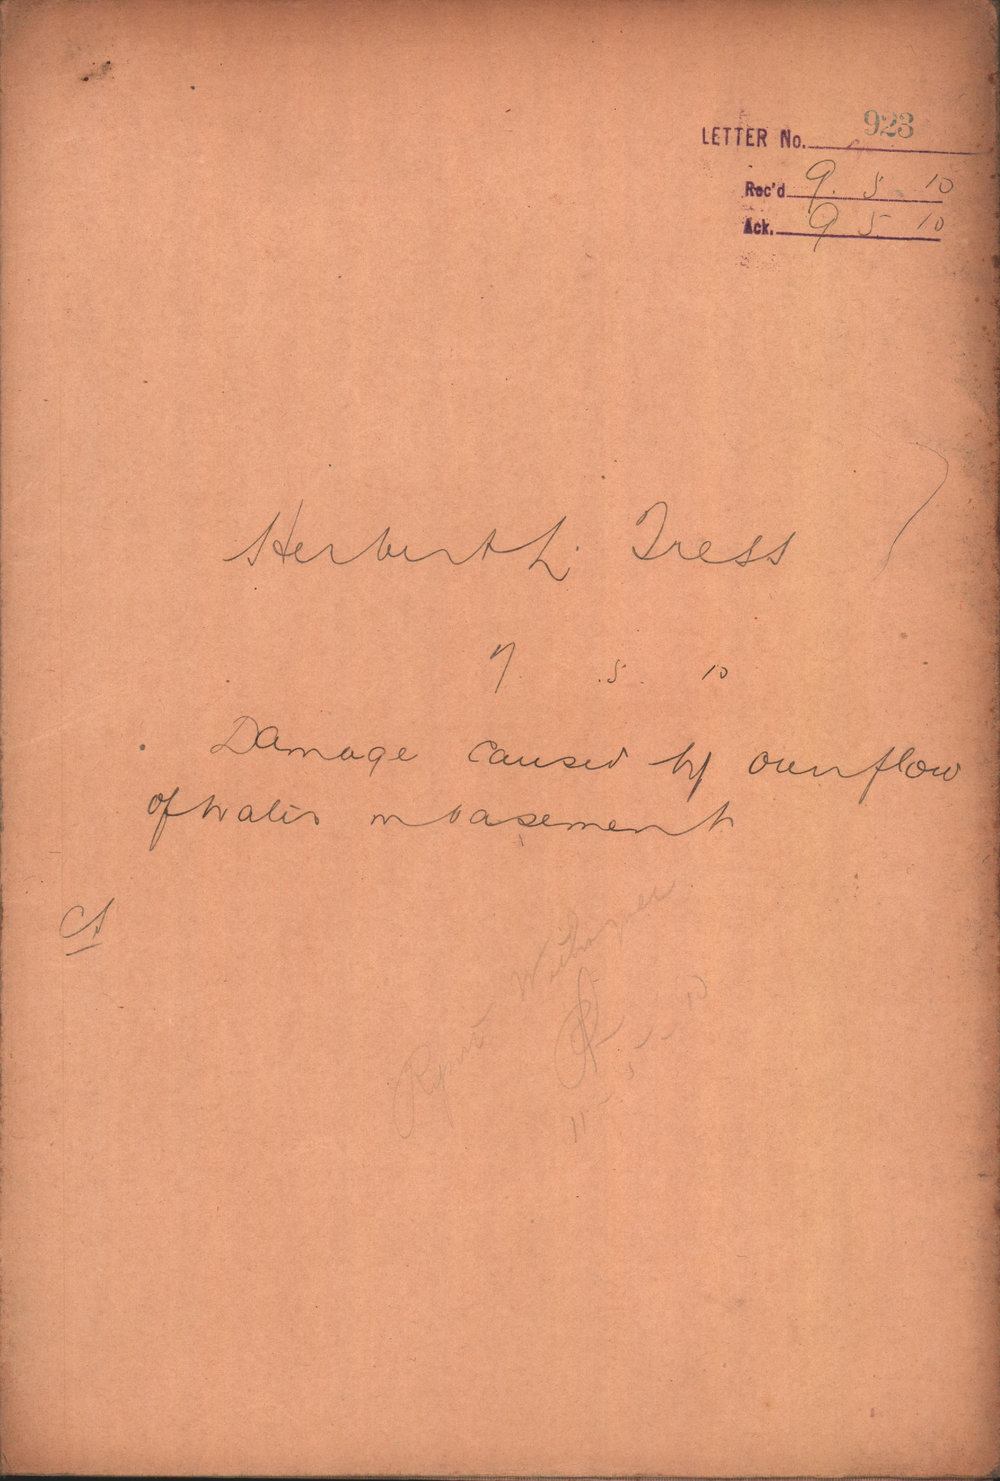 LETTER No. 923
Rec'd 9. 5 10
Ack. 9 5 10
Herbert L. Tress
7. .5. 10
Damage caused by overflow
of water in basement
Report
11 5 10